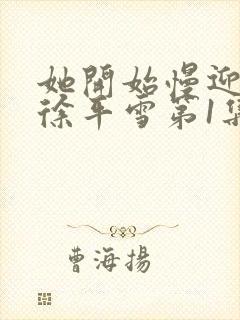 她開始慢迎
徐平雪第1集
曹海揚